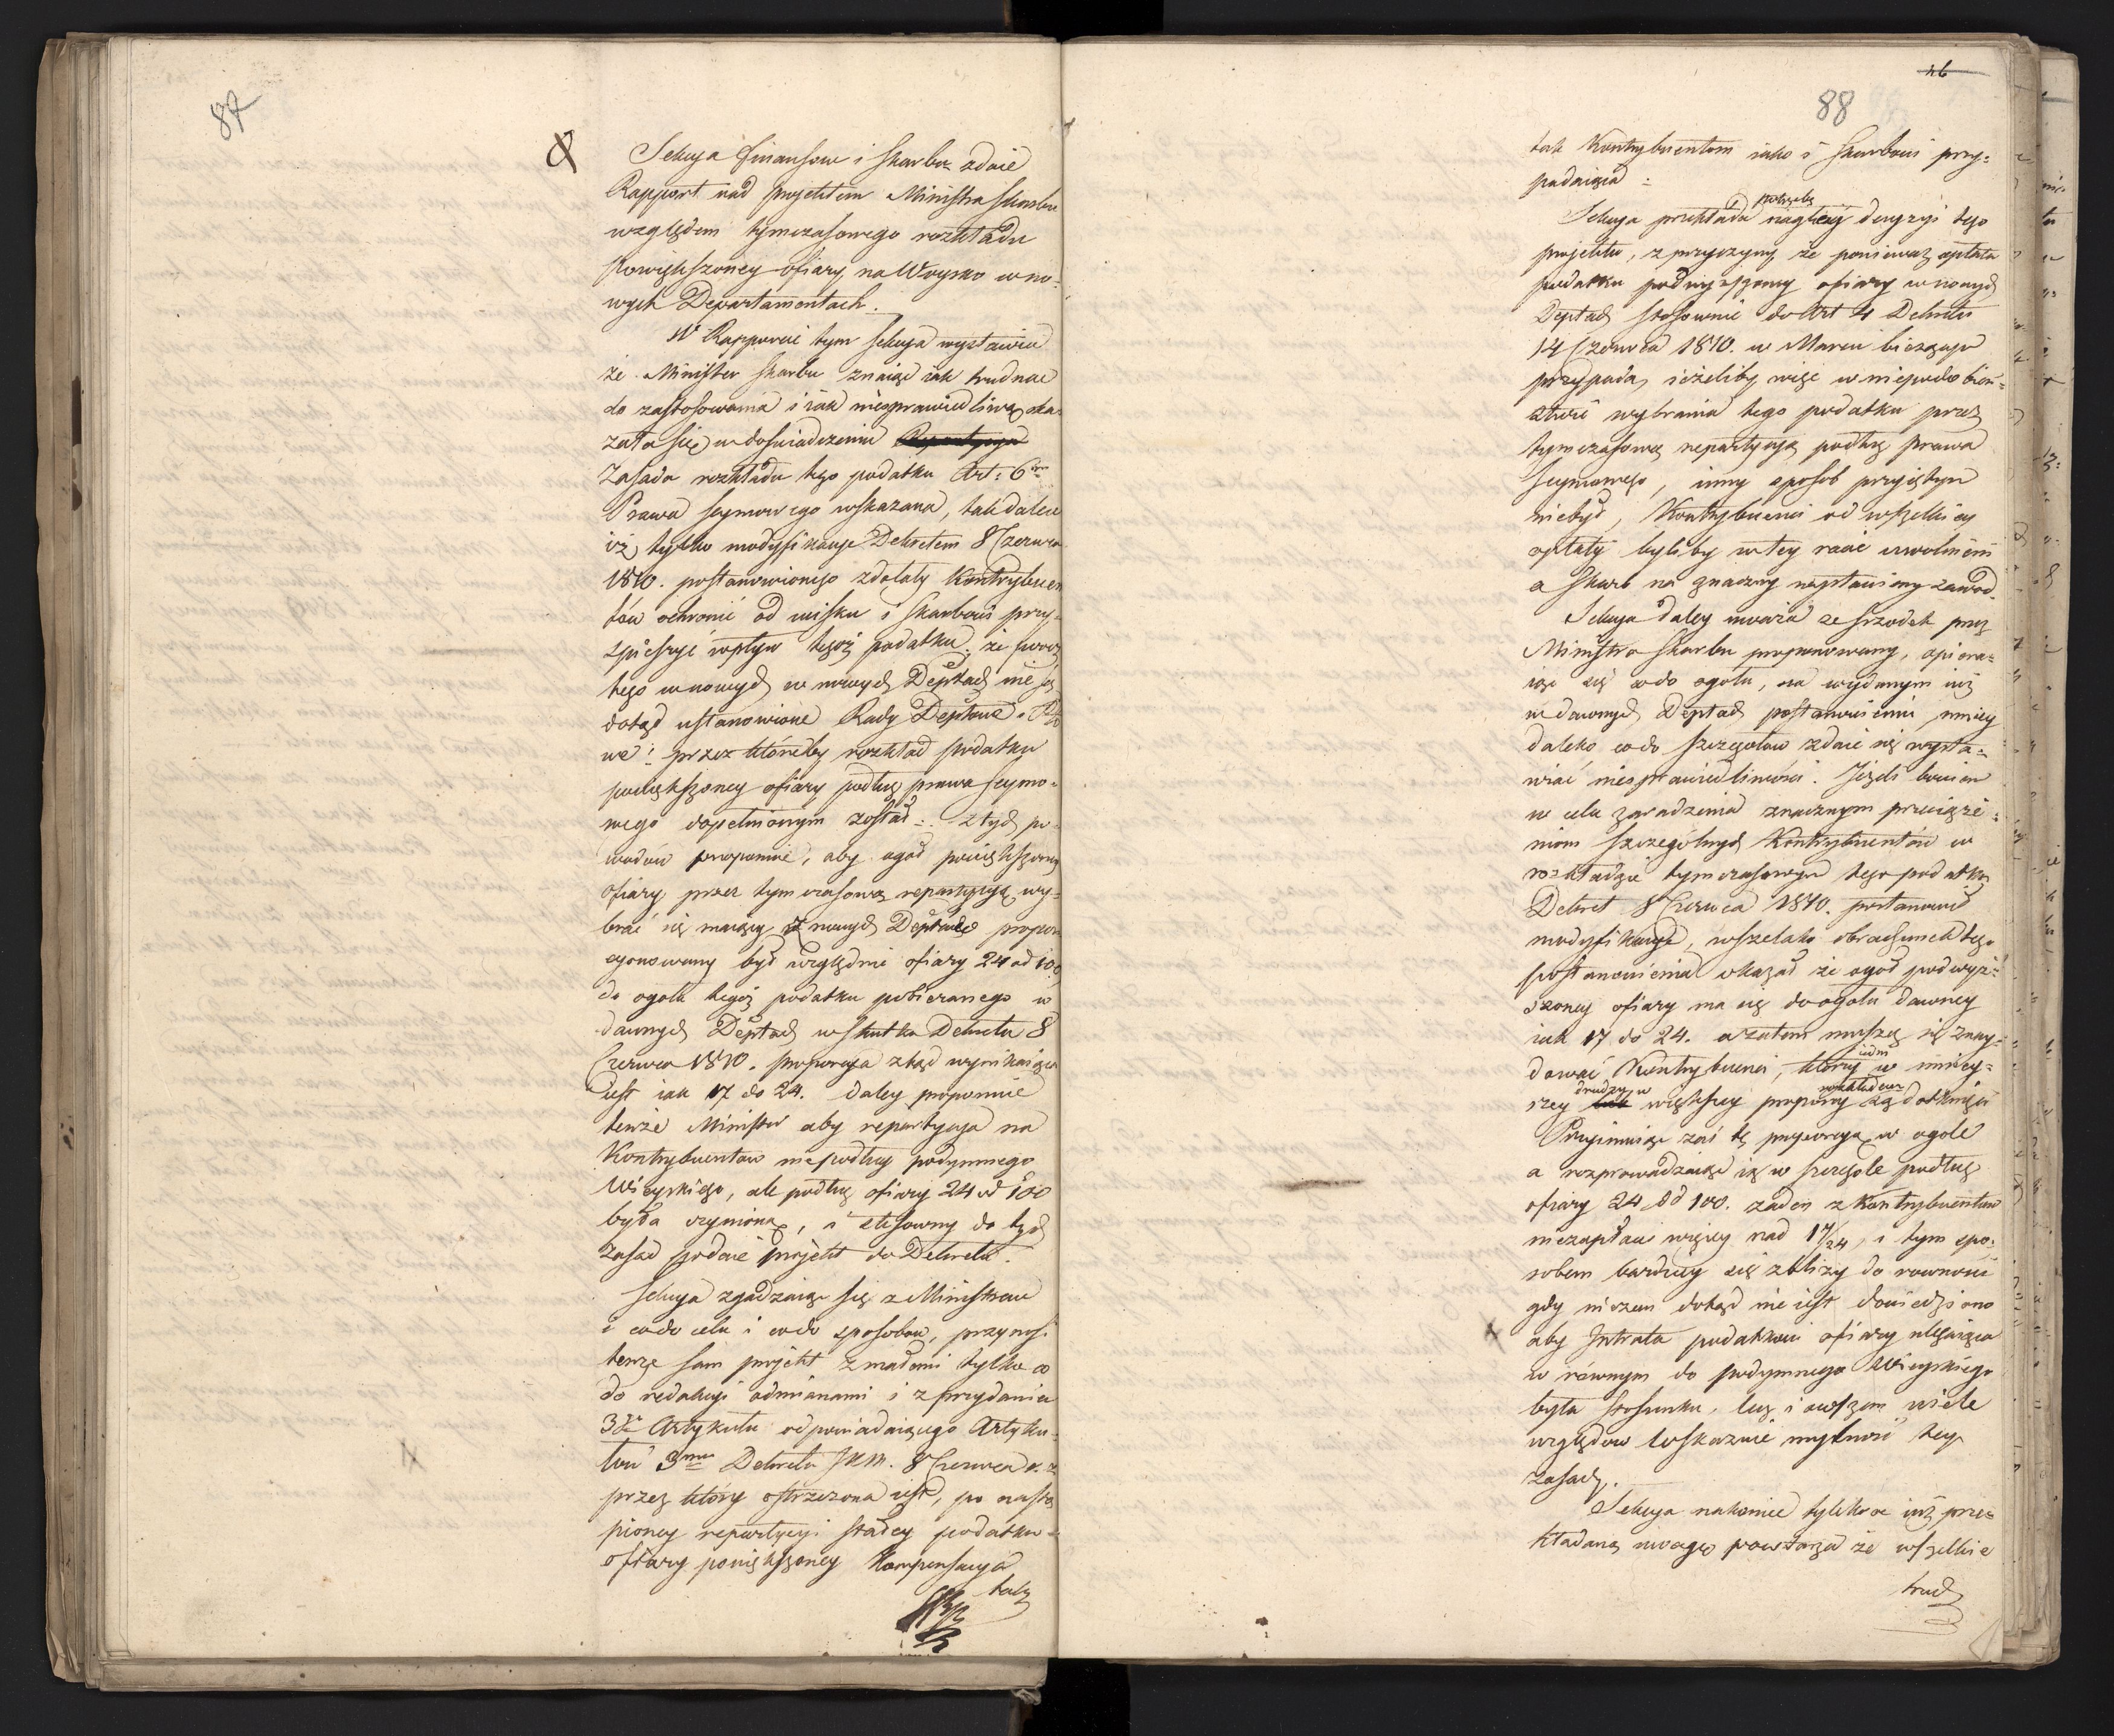 87
Sekcya finansow i skarbu zdaie
Rapport nad projektem Ministra skarbu
względem tymczasowego rozkładu
powiększoney ofiary na Woysko w no-
wych Departamentach.
W Rapporcie tym sekcya wystawia
że Minister skarbu znaiąc jak trudną
do zastosowania i jak niesprawiedliwą oka-
zała się w doświadczeniu Repartycya
Zasada rozkładu tego podatku Art: 6
Prawa seymowego wskazana, tak dalece
iż tylko modyfikacye Dekretem 8 Czerwca
1810. postanowionego zdołały Kontrybuen
tów ochronić od ucisku i skarbowi przy-
spieszyć wpływ tegoż podatku; że procz
tego w nowych w nowych Deptach nie są
dotąd ustanowione Rady Deptowe i
we: przez któreby rozkład podatku
powiększoney ofiary podług prawa seymo-
wego dopełnionym został: z tych po-
wodów proponuie, aby ogół powiększoney
ofiary przez tymczasową repartycyą wy-
brać się maiący z nowych Deptach propor
cyonowany był względnie ofiary 24 od 100
do ogółu tegoż podatku pobieranego w
dawnych Deptach w skutku Dekretu 8
Czerwca 1810. proporcya ztąd wynikaiąca
iest iak 17 do 24. daley proponuie
tenże Minister aby repartycya na
Kontrybuentow nie podług podymnego
Wieyskiego, ale podług ofiary 24 od 100
była czyniona, i stosowny do tych
zasad podaie projekt do Dekretu.
Sekcya zgadzaiąc się z Ministrem
i co do celu i co do sposobow, przynosi
tenże sam projekt z małemi tylko co
do redakcyi odmianami i z przydaniem
3go Artykułu odpowiadaiącego Artyku-
łowi 3mu Dekretu JKM. 8 Czerwca r. z.
przez który ostrzeżona iest, po nastą
pioney repartycyi stałey podatku
ofiary powiększoney Kompensacya
tak
26
88
tak Kontrybuentom iako i skarbowi przy-
padaiąca:
potrzebę
Sekcya przekłada nagłey decyzyi tego
projektu, z przyczyny że ponieważ opłata
podatku podwyższoney ofiary w nowych
Deptach stosownie do Art 4 Dekretu
14 Czerwca 1810. w Marcu bieżącym
przypada, ieżeliby więc w niepodobień-
stwie wybrania tego podatku przez
tymczasową repartycyą podług Prawa
seymowego, inny sposob przyiętym
niebył, Kontrybuenci od wszelkiey
opłaty byliby w tey racie uwolnieni
a Skarb na znaczny wystawiony zawod.
Sekcya daley uważa że srzodek przez
Ministra skarbu proponowany, opiera-
iąc się co do ogołu, na wydanym iuż
w dawnych Deptach postanowieniu, mniey
daleko co do szczegołow zdaie się wysta-
wiać niesprawiedliwości. Jeżeli bowiem
w celu zaradzenia znacznym przeciąże-
niom szczególnych Kontrybuentów w
rozkładzie tymczasowym tego podatku
Dekret 8 Czerwca 1810. postanowił
modyfikacye, wszelako obrachunek tego
postanowienia okazał że ogół podwyż-
szoney ofiary ma się do ogołu dawney
iak 17 do 24. a zatem muszą się znay-
iedni
dować Kontrybuenci, którzy w mniey-
drudzy w rozkładem
szey większey proporcyi są dotknięci
Przyimuiąc zaś tę proporcyą w ogole
a rozprowadzaiąc ią w szczegole podług
ofiary 24 od 100. żaden z Kontrybuentow
niezapłaci więcey nad 17/24, i tym spo-
sobem bardziey się zbliży do rowności
gdy niczem dotąd nie iest dowiedziono
aby Intrata podatkowi ofiary ulegaiąca
w równym do podymnego Wieyskiego
była stosunku, lecz i owszem wiele
względow wskazuie mylność tey
zasady.
Sekcya nakoniec tylekroć iuż prze-
kładaną uwagę powtarza że wszelkie
trud